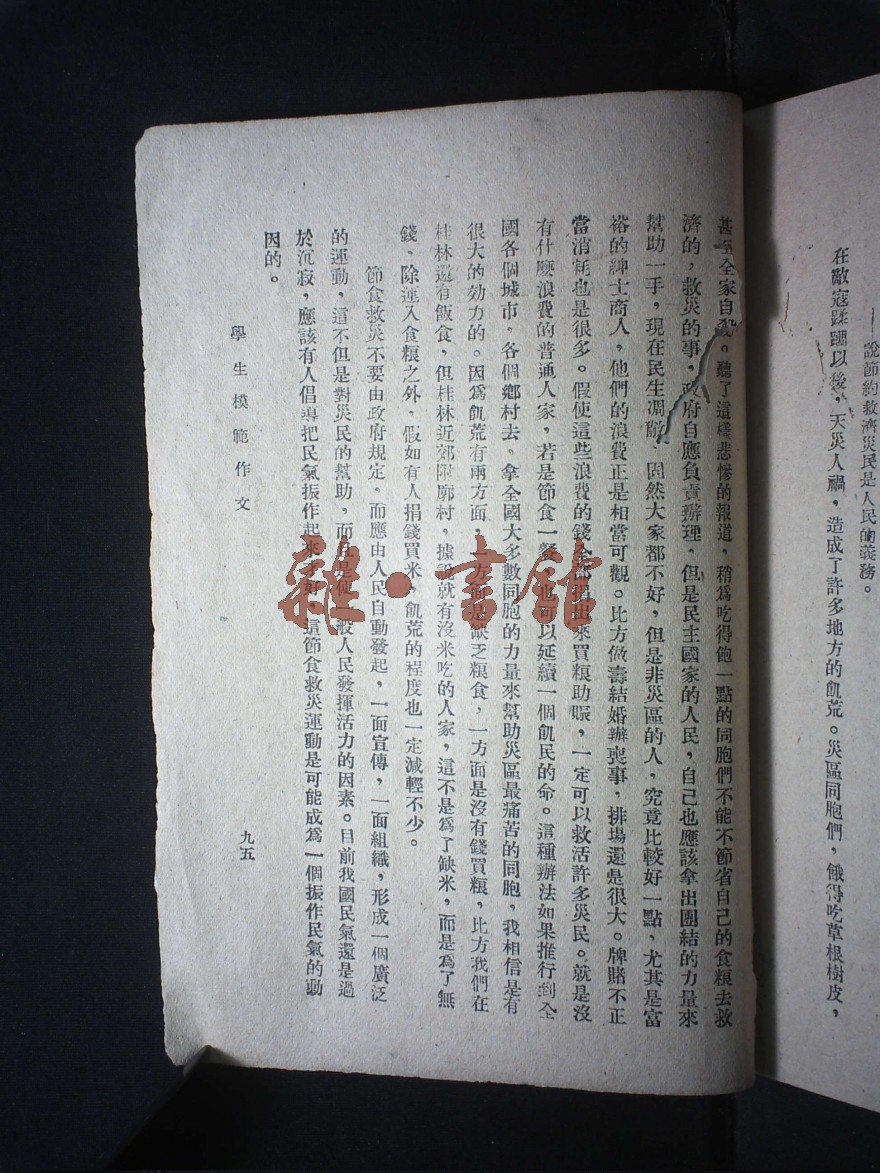 ——說節約救濟災民是人民的義務。
在敵寇蹂躪以後，天災人禍，造成了許多地方的飢荒。災區同胞們，餓得吃草根樹皮，
甚至全家自殺。聽了這樣悲慘的報道，稍爲吃得飽一點的同胞們不能不節省自己的食糧去救
濟的，救災的事，政府自應負責辦理，但是民主國家的人民，自己也應該拿出團結的力量來
幫助一手，現在民生凋敝，固然大家都不好，但是非災區的人，究竟比較好一點，尤其是富
裕的紳士商人，他們的浪費正是相當可觀。比方做壽結婚辦喪事，排場還是很大。牌賭不正
當消耗也是很多。假使這些浪費的錢全部捐出來買糧助賑，一定可以救活許多災民。就是沒
有什麼浪費的普通人家，若是節食一餐，也可以延續一個飢民的命。這種辦法如果推行到全
國各個城市，各個鄉村去，拿全國大多數同胞的力量來幫助災區最痛苦的同胞，我相信是有
很大的効力的。因爲飢荒有兩方面，一方面是缺乏糧食，一方面是沒有錢買糧，比方我們在
桂林還有飯食，但桂林近郊附廓村，據說就有沒米吃的人家，這不是爲了缺米，而是爲了無
錢，除運入食糧之外，假如有人捐錢買米，飢荒的程度也一定減輕不少。
節食救災不要由政府規定，而應由人民自動發起，一面宣傳，一面組織，形成一個廣泛
的運動，這不但是對災民的幫助，而且是使一般人民發揮活力的因素。目前我國民氣還是過
於沉寂，應該有人倡導把民氣振作起來才好，這節食救災運動是可能成爲一個振作民氣的動
因的。
學生模範作文
九五
雜·書館